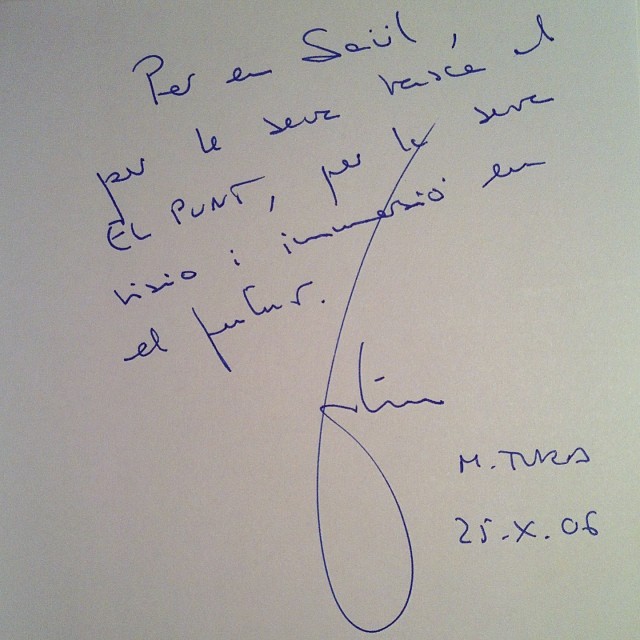 Per en Saül,
per la seva tasca al
EL PUNT, per la seva
visio i immersió en
el futur.
M. TURA
25.X.06